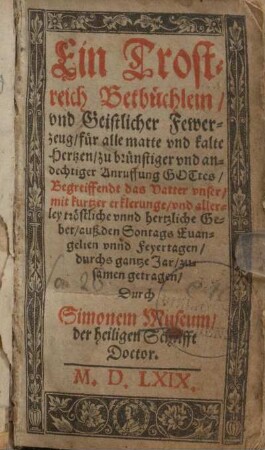 Ein Trost⸗
reich Betbüchlein /
vnd Geistlicher Fewer⸗
zeug / für alle matte vnd kalte
Hertzen / zu brünstiger vnd an⸗
dechtiger Anruffung GOTtes /
Begreiffendt das Vatter vnser /
mit kurtzer erklerunge / vnd aller⸗
ley tröstliche vnnd hertzliche Ge⸗
bet / außden Sontags Euan⸗
gelien vnnd Feyertagen /
durchs gantze Jar / zu⸗
samen getragen /
Durch
Simonem Museum /
der heiligen Schrifft
Doctor.
M. D. LXIX.